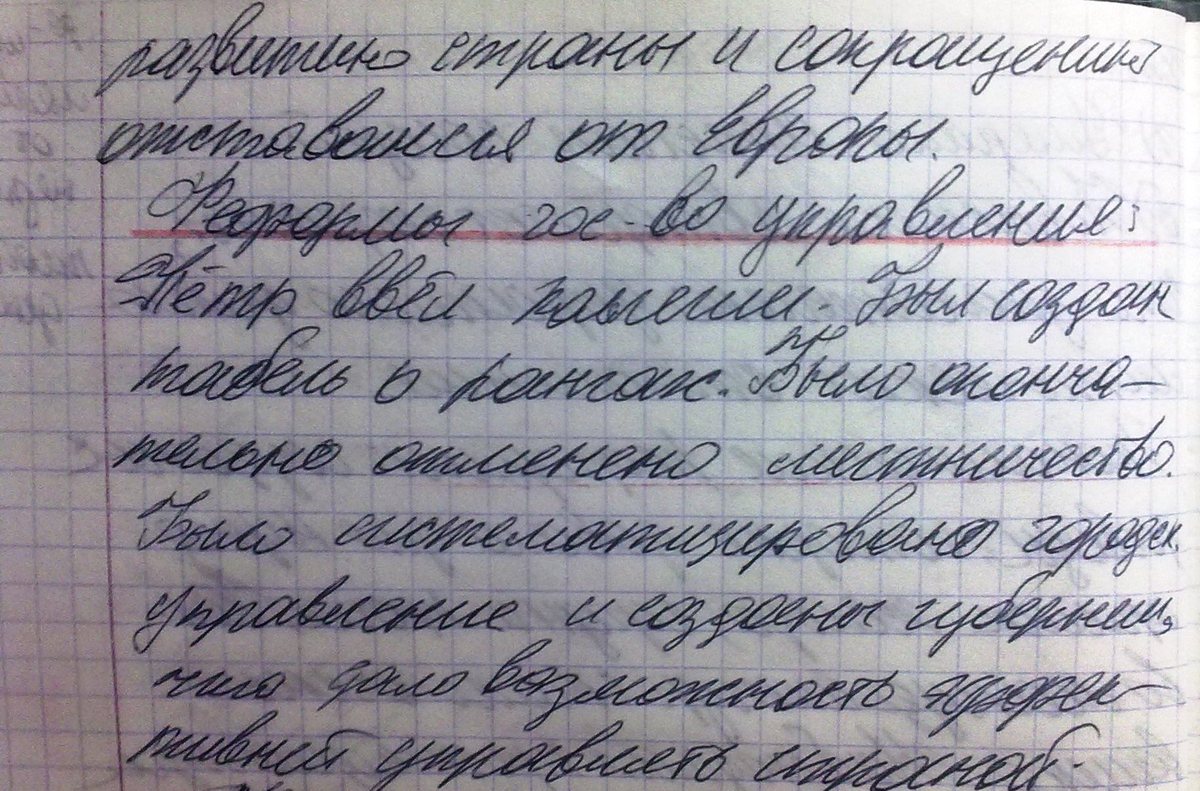 развитию страны и сокращению
отставания от Европы.
Реформы гос-во управления:
Пётр ввёл коллегии. Был создан
табель о рангах. Было оконча-
тельно отменено местничество.
Было систематизировано городск.
управление и созданы губернии,
что дало возможность эффек-
тивней управлять страной.